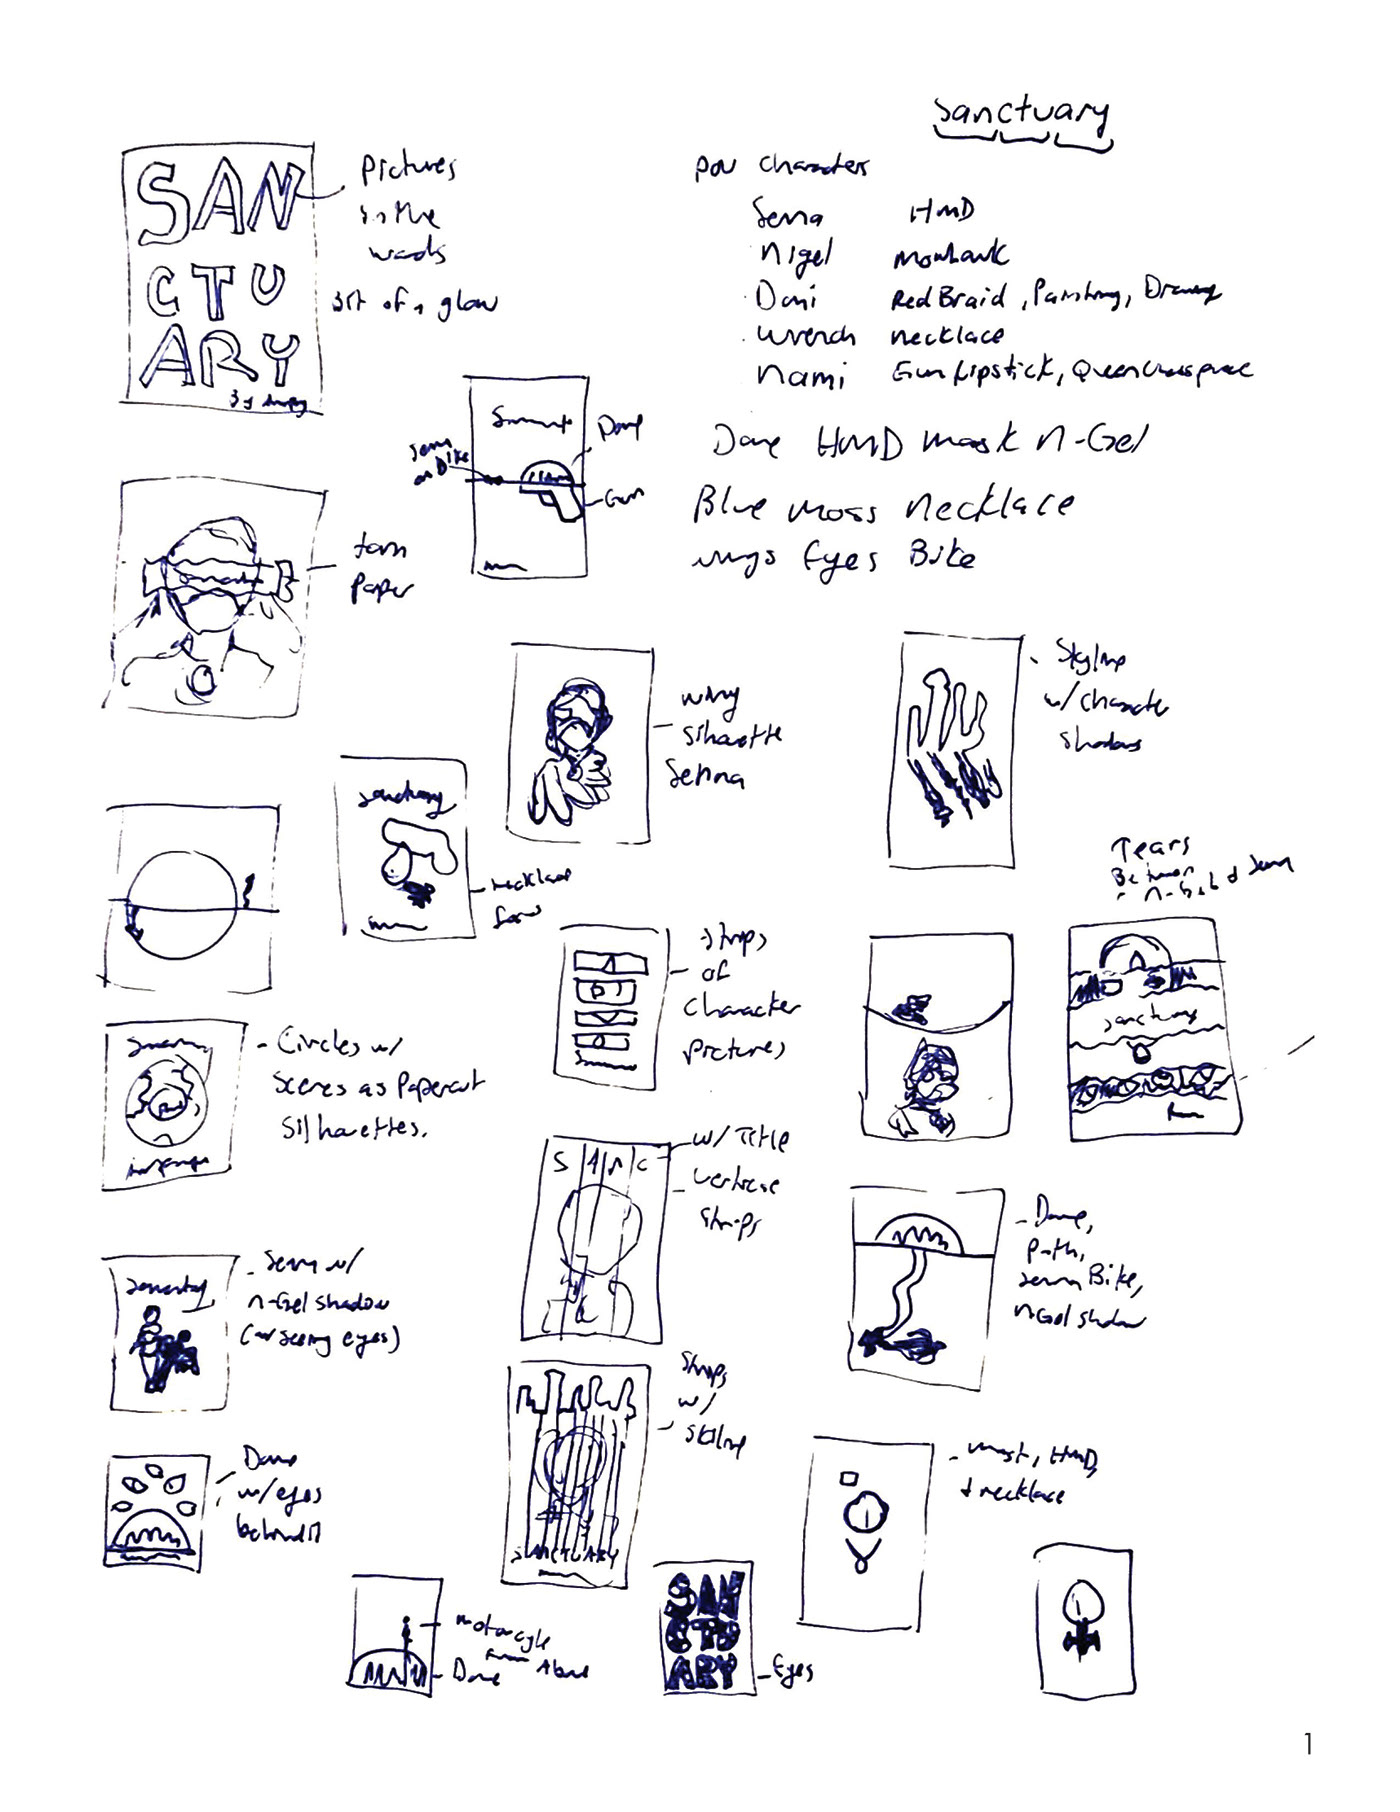 Sanctuary
SAN
CTU
ARY
Pictures
in the
words
Bit of a glow
POV Characters
Senna HMD
Nigel Mowhawk
Dani Red Braid, Painting, Drawing
Wrench necklace
Nami Gun Lipstick,
Dome HMD mask N-Gel
Blue moss necklace
wings Eyes Bike
Dome
on Bike
Gun
torn
paper
wing
Silhouette
Senna
Skyline
w/ character
shadows
Sanctuary
necklace
Tears
Between
Sanctuary
- Strips
of
Character
Pictures
- Circles w/
Scenes as Papercut
Silhouettes.
w/ Title
S A N C
- Dome,
Path,
Senna Bike,
N-Gel shadow
- Senna w/
N-Gel shadow
(w/ seeing eyes)
Strips
w/
Skyline
SANCTUARY
Dome
w/ eyes
behind it
- mask, HMD,
+ necklace
- motorcycle
from Above
- Dome
SAN
CTU
ARY
- Eyes
1